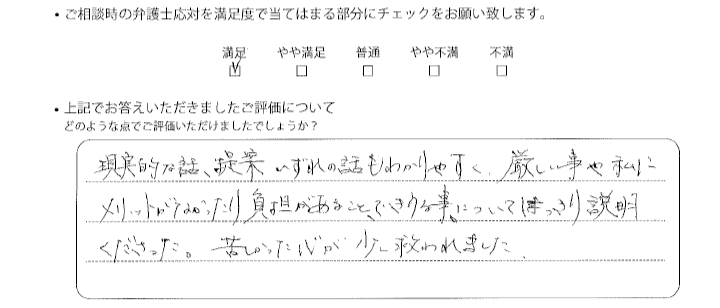 ・ご相談時の弁護士応対を満足度で当てはまる部分にチェックをお願い致します。
満足 やや満足 普通 やや不満 不満
☑ □ □ □ □
・上記でお答えいただきましたご評価について
どのような点でご評価いただけましたでしょうか？
現実的な話、提案 いずれの話もわかりやすく、厳しい事や私に
メリットがなかったり負担があること、できうる事についてはっきり説明
くださった。苦しかった心が少し救われました。